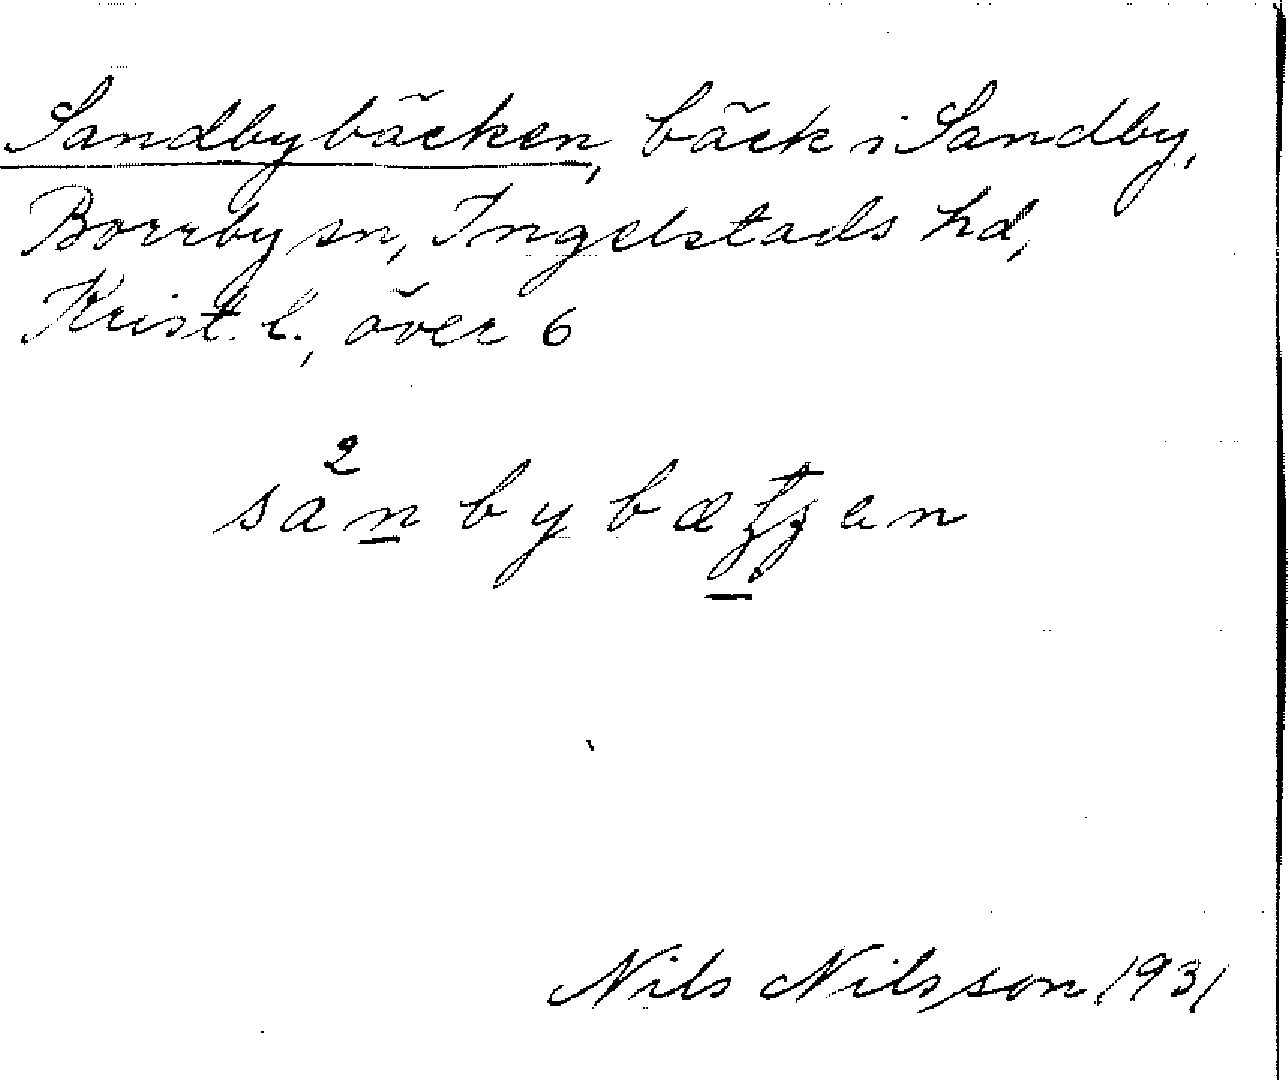 Sandbybäcken, bäck i Sandby,
Borrby sn, Ingelstads hd,
Krist. l., över 6
2
sanbybæ en
Nils Nilsson 1931